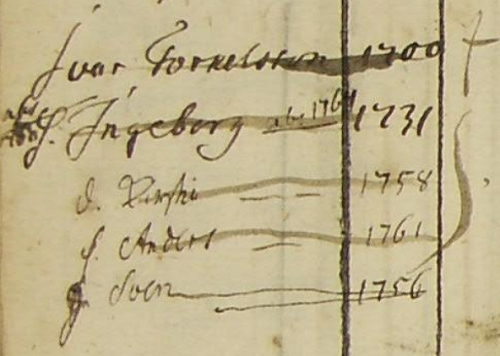 Ivar Torkelsson 1700 †
H. Ingeborg 1764 1731
d. Kersti 1758
s. Anders 1761
Sven 1756